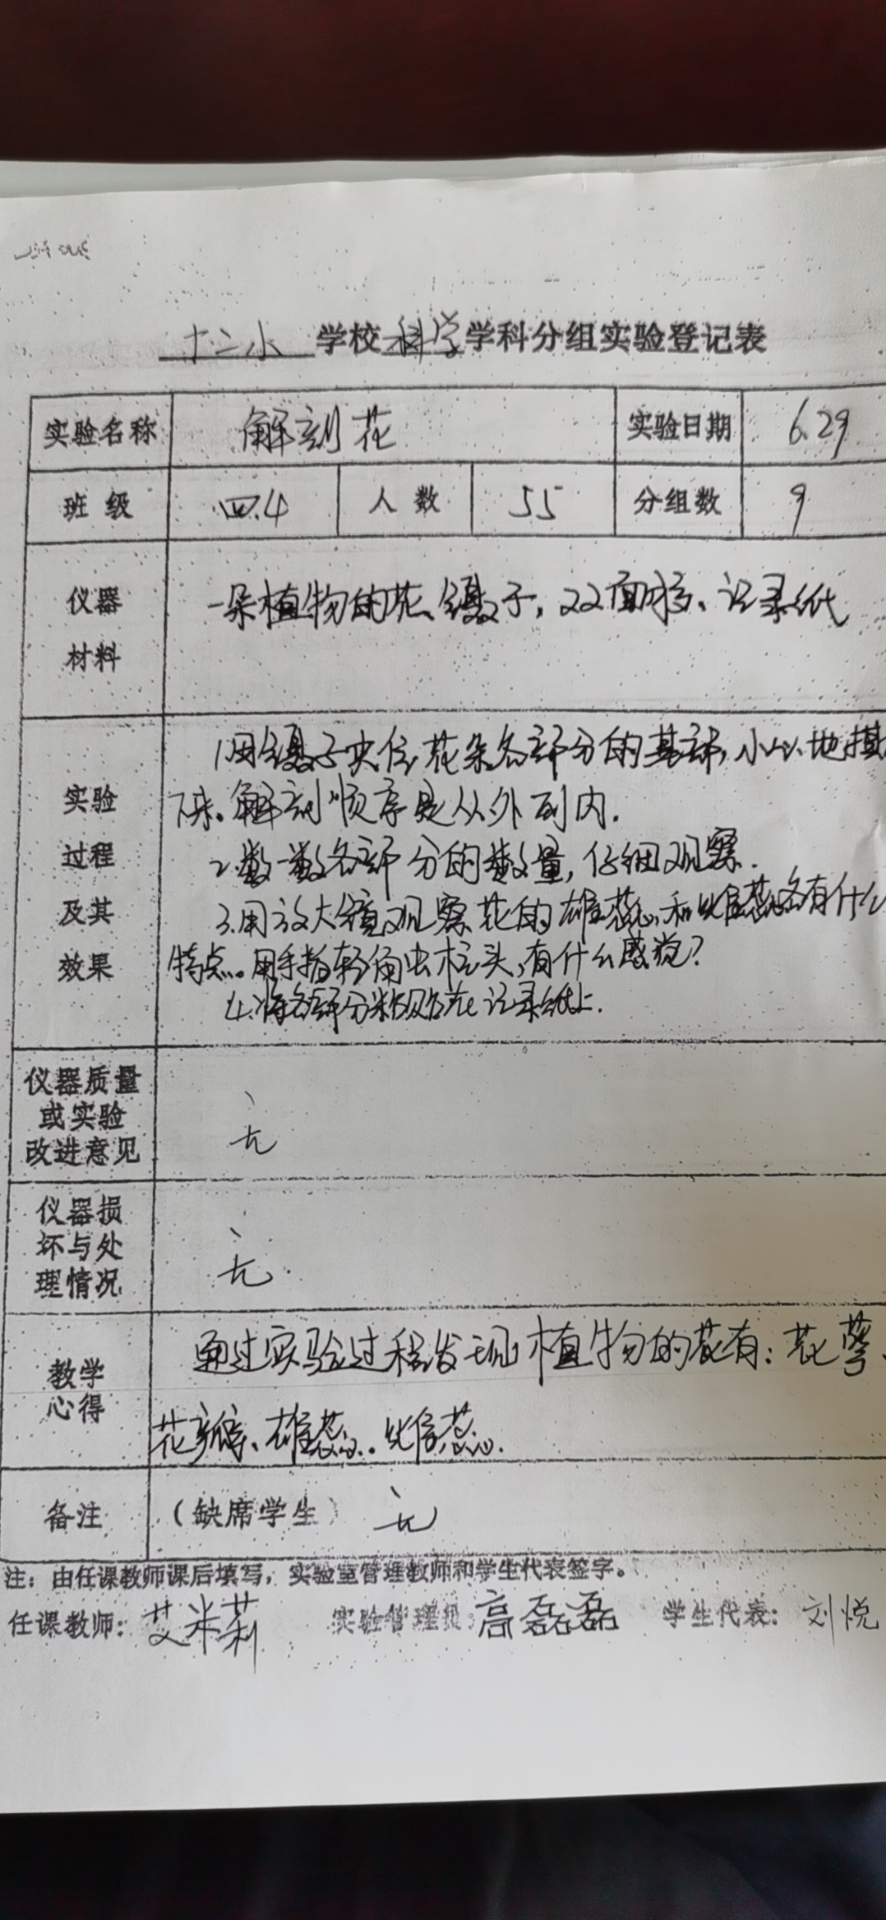 十二小 学校 科学 学科分组实验登记表
实验名称 解刻花 实验日期 6.29
班级 四.4 人数 55 分组数 9
仪器材料 一朵植物的花、镊子,双面胶、记录纸
实验过程及其效果
1.用镊子夹住花朵各部分的基部,小心地摘
下来。解剖顺序是从外到内.
2.数一数各部分的数量,仔细观察.
3.用放大镜观察花的雄蕊和雌蕊各有什么
特点。用手指轻触柱头,有什么感觉?
4.将各部分粘贴在记录纸上.
仪器质量或实验改进意见 无
仪器损坏与处理情况 无
教学心得 通过实验过程发现植物的花有:花萼、
花瓣、雄蕊、雌蕊.
备注 (缺席学生) 无
注:由任课教师课后填写,实验室管理教师和学生代表签字。
任课教师:艾米莉 实验管理员:高磊磊 学生代表:刘悦